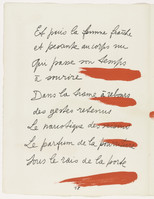 Et puis la femme lisible
et pesante au corps nu
qui passe son temps
à sourire
Dans la trame à rebours
des gestes retenus
Le narcotique des
Le parfum de la
Sous le rais de la porte